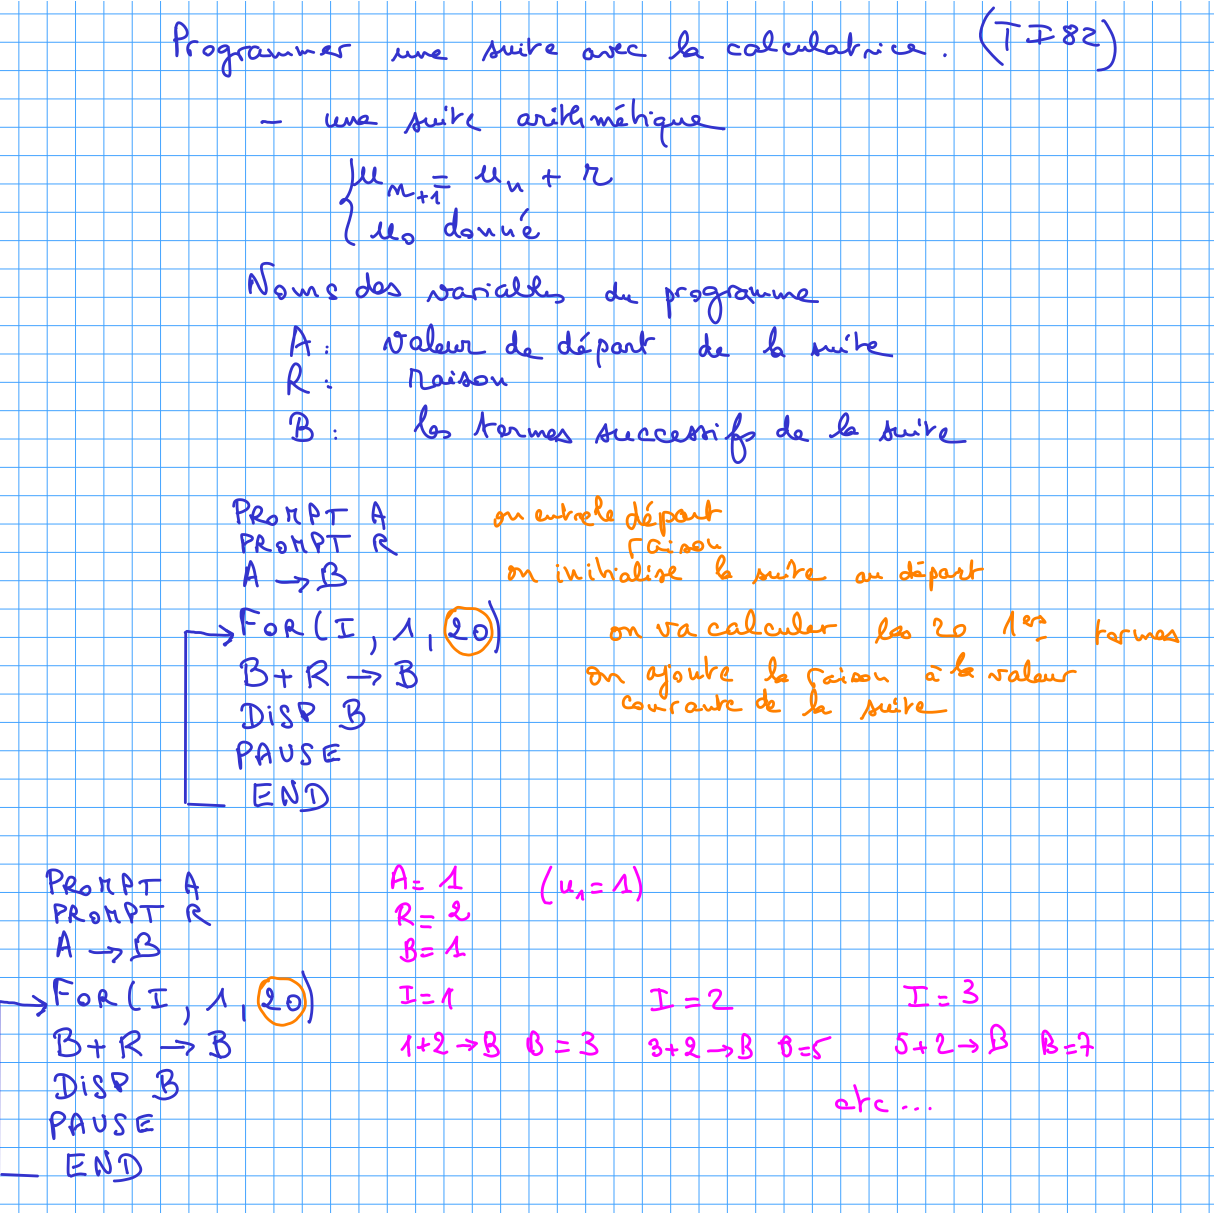 Programmer une suite avec la calculatrice. (TI82)
- une suite arithmétique
u n+1 = u n + r
u0 donné
Noms des variables du programme
A : valeur de départ de la suite
R : raison
B : les termes successifs de la suite
PROMPT A on entre le départ
PROMPT R raison
A → B on initialise la suite au départ
FOR(I, 1, 20) on va calculer les 20 1ers termes
B+R → B on ajoute la raison à la valeur
courante de la suite
DISP B
PAUSE
END
PROMPT A A = 1 (u1 = 1)
PROMPT R R = 2
A → B B = 1
FOR(I, 1, 20) I = 1 I = 2 I = 3
B+R → B 1+2 → B B = 3 3+2 → B B=5 5+2 → B B=7
DISP B
etc ...
PAUSE
END